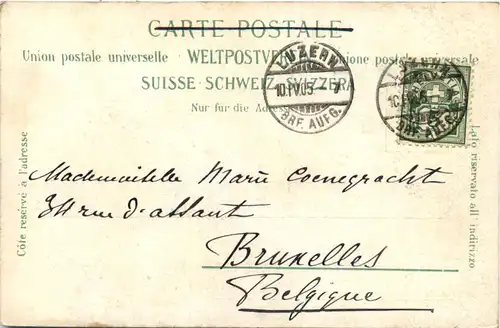 CARTE POSTALE
Union postale universelle WELTPOSTV Unione postale universale
SUISSE SCHWEIZ SVIZZERA
Nur für die Adre
LUZERN
10.IV.05
BRF. AUFG.
BRF. AUFG.
Côté réservé à l'adresse
Lato riservato all' indirizzo
Mademoiselle Marie Coenegracht
rue d'assaut
Bruxelles
Belgique